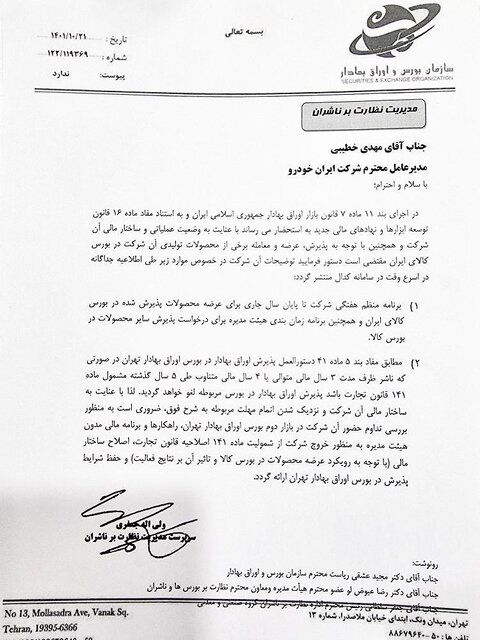 بسمه تعالی
تاریخ : ۱۴۰۱/۱۰/۲۱
شماره : ۱۲۲/۱۱۹۳۶۹
پیوست: ندارد
سازمان بورس و اوراق بهادار
SECURITIES & EXCHANGE ORGANIZATION
مدیریت نظارت بر ناشران
جناب آقای مهدی خطیبی
مدیرعامل محترم شرکت ایران خودرو
با سلام و احترام؛
در اجرای بند ۱۱ ماده ۷ قانون بازار اوراق بهادار جمهوری اسلامی ایران و به استناد مفاد ماده ۱۶ قانون
توسعه ابزارها و نهادهای مالی جدید به استحضار می رساند با عنایت به وضعیت عملیاتی و ساختار مالی آن
شرکت و همچنین با توجه به پذیرش، عرضه و معامله برخی از محصولات تولیدی آن شرکت در بورس
کالای ایران مقتضی است دستور فرمایید توضیحات آن شرکت در خصوص موارد زیر طی اطلاعیه جداگانه
در اسرع وقت در سامانه کدال منتشر گردد:
۱) برنامه منظم هفتگی شرکت تا پایان سال جاری برای عرضه محصولات پذیرش شده در بورس
کالای ایران و همچنین برنامه زمان بندی هیئت مدیره برای درخواست پذیرش سایر محصولات در
بورس کالا.
۲) مطابق مفاد بند ۵ ماده ۴۱ دستورالعمل پذیرش اوراق بهادار در بورس اوراق بهادار تهران در صورتی
که ناشر ظرف مدت ۳ سال مالی متوالی یا ۴ سال مالی متناوب طی ۵ سال گذشته مشمول ماده
۱۴۱ قانون تجارت باشد پذیرش اوراق بهادار در بورس مربوطه لغو خواهد گردید. لذا با عنایت به
ساختار مالی آن شرکت و نزدیک شدن اتمام مهلت مربوطه به شرح فوق، ضروری است به منظور
بررسی تداوم حضور آن شرکت در بازار دوم بورس اوراق بهادار تهران، راهکارها و برنامه مالی مدون
هیئت مدیره به منظور خروج شرکت از شمولیت ماده ۱۴۱ اصلاحیه قانون تجارت، اصلاح ساختار
مالی (با توجه به رویکرد عرضه محصولات در بورس کالا و تاثیر آن بر نتایج فعالیت) و حفظ شرایط
پذیرش در بورس اوراق بهادار تهران ارائه گردد.
ولی اله جعفری
سرپرست مدیریت نظارت بر ناشران
رونوشت:
جناب آقای دکتر مجید عشقی ریاست محترم سازمان بورس و اوراق بهادار
جناب آقای دکتر رضا عیوض لو عضو محترم هیأت مدیره ومعاون محترم نظارت بر بورس ها و ناشران
تهران، میدان ونک، ابتدای خیابان ملاصدرا، شماره ۱۳
No 13, Mollasadra Ave, Vanak Sq.
Tehran, 19395-6366